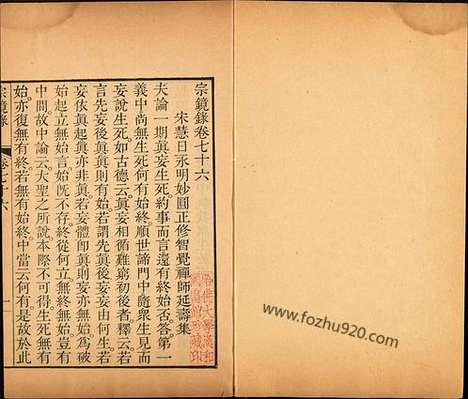 宗鏡錄卷七十六
宋慧日永明妙圓正修智覺禪師延壽集
夫論一期真妄生死約事而言還有終始否答第一
義中尚無生死何有始終順世諦門中隨衆生見而
妄說生死如古德云真妄相循難窮初後者釋云若
言先妄後真真則有始若謂先真後妄妄由何生若
妄依真起真亦非真若妄體卽真則妄亦無始為破
始起立無始言始旣不存終從何立無終無始豈有
中間故中論云大聖之所說本際不可得生死無有
始亦復無有終若無有始終中當云何有是故於此
宗鏡錄
卷七十六
一
www.fozhu920.com